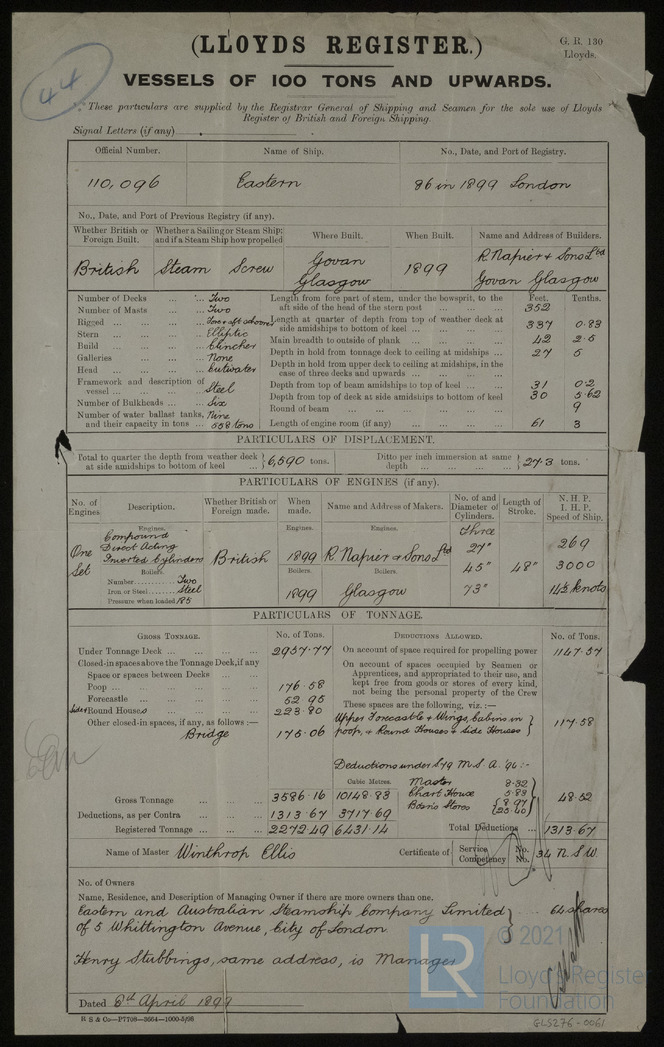 (LLOYDS REGISTER.)
G. R. 130
Lloyds.
44
VESSELS OF 100 TONS AND UPWARDS.
These particulars are supplied by the Registrar General of Shipping and Seamen for the sole use of Lloyds
Register of British and Foreign Shipping.
Signal Letters (if any)
Official Number. Name of Ship. No., Date, and Port of Registry.
110,096 Eastern 86 in 1899 London
No., Date, and Port of Previous Registry (if any).
Whether British or Foreign Built. Whether a Sailing or Steam Ship; and if a Steam Ship how propelled Where Built. When Built. Name and Address of Builders.
British Steam Screw Govan Glasgow 1899 R. Napier & Sons Ltd Govan Glasgow
Number of Decks ... ... Two
Number of Masts ... Two
Rigged ... ... ... Fore & aft schooner
Stern ... ... ... Elliptic
Build ... ... ... Clincher
Galleries ... ... None
Head ... ... ... Cutwater
Framework and description of vessel ... ... ... Steel
Number of Bulkheads ... Six
Number of water ballast tanks, and their capacity in tons ... Nine 558 tons
Feet. Tenths.
Length from fore part of stem, under the bowsprit, to the aft side of the head of the stern post ... ... 352
Length at quarter of depth from top of weather deck at side amidships to bottom of keel ... ... ... 337 0.83
Main breadth to outside of plank ... ... ... 42 2.5
Depth in hold from tonnage deck to ceiling at midships ... 27 5
Depth in hold from upper deck to ceiling at midships, in the case of three decks and upwards ... ... ...
Depth from top of beam amidships to top of keel ... ... 31 0.2
Depth from top of deck at side amidships to bottom of keel 30 5.62
Round of beam ... ... ... ... ... 9
Length of engine room (if any) ... ... ... 61 3
PARTICULARS OF DISPLACEMENT.
Total to quarter the depth from weather deck at side amidships to bottom of keel ... } 6,590 tons. Ditto per inch immersion at same depth ... ... ... ... } 27.3 tons.
PARTICULARS OF ENGINES (if any).
No. of Engines Description. Whether British or Foreign made. When made. Name and Address of Makers. No. of and Diameter of Cylinders. Length of Stroke. N. H. P. I. H. P. Speed of Ship.
Engines. Engines. Engines.
One Set Compound Direct Acting Inverted Cylinders British 1899 R. Napier & Sons Ltd three 27" 45" 73" 48" 269 3000 14½ knots
Boilers. Boilers. Boilers.
Number............ Two
Iron or Steel....... Steel 1899 Glasgow
Pressure when loaded 185
PARTICULARS OF TONNAGE.
GROSS TONNAGE. No. of Tons. DEDUCTIONS ALLOWED. No. of Tons.
Under Tonnage Deck ... ... ... 2957.77 On account of space required for propelling power 1147.57
Closed-in spaces above the Tonnage Deck, if any
Space or spaces between Decks ... ...
Poop ... ... ... ... ... 176.58
Forecastle ... ... ... ... 52.95
Side & Round Houses ... ... ... 223.80
Other closed-in spaces, if any, as follows :—
Bridge 175.06
On account of spaces occupied by Seamen or Apprentices, and appropriated to their use, and kept free from goods or stores of every kind, not being the personal property of the Crew
These spaces are the following, viz. :—
Upper Forecastle & Wings, Cabins in poop, & Round Houses & Side Houses } 117.58
Deductions under S 79 M.S.A. '94 :-
Cubic Metres.
Master 8.32
Chart House 5.83
Bosn's Stores { 8.97 25.40 } 48.52
Gross Tonnage ... ... 3586.16 10148.83
Deductions, as per Contra ... 1313.67 3717.69
Registered Tonnage ... ... 2272.49 6431.14
Total Deductions ... 1313.67
Name of Master Winthrop Ellis Certificate of { Service No. Competency No. 34 N.S.W.
No. of Owners
Name, Residence, and Description of Managing Owner if there are more owners than one.
Eastern and Australian Steamship Company Limited } ... 64 shares
of 5 Whittington Avenue, City of London
Henry Stubbings, same address, is Manager
Dated 6th April 1899
B S & Co—P7708—3664—1000-5/98
LR
© 2021
Lloyd's Register
Foundation
GLS276-0061